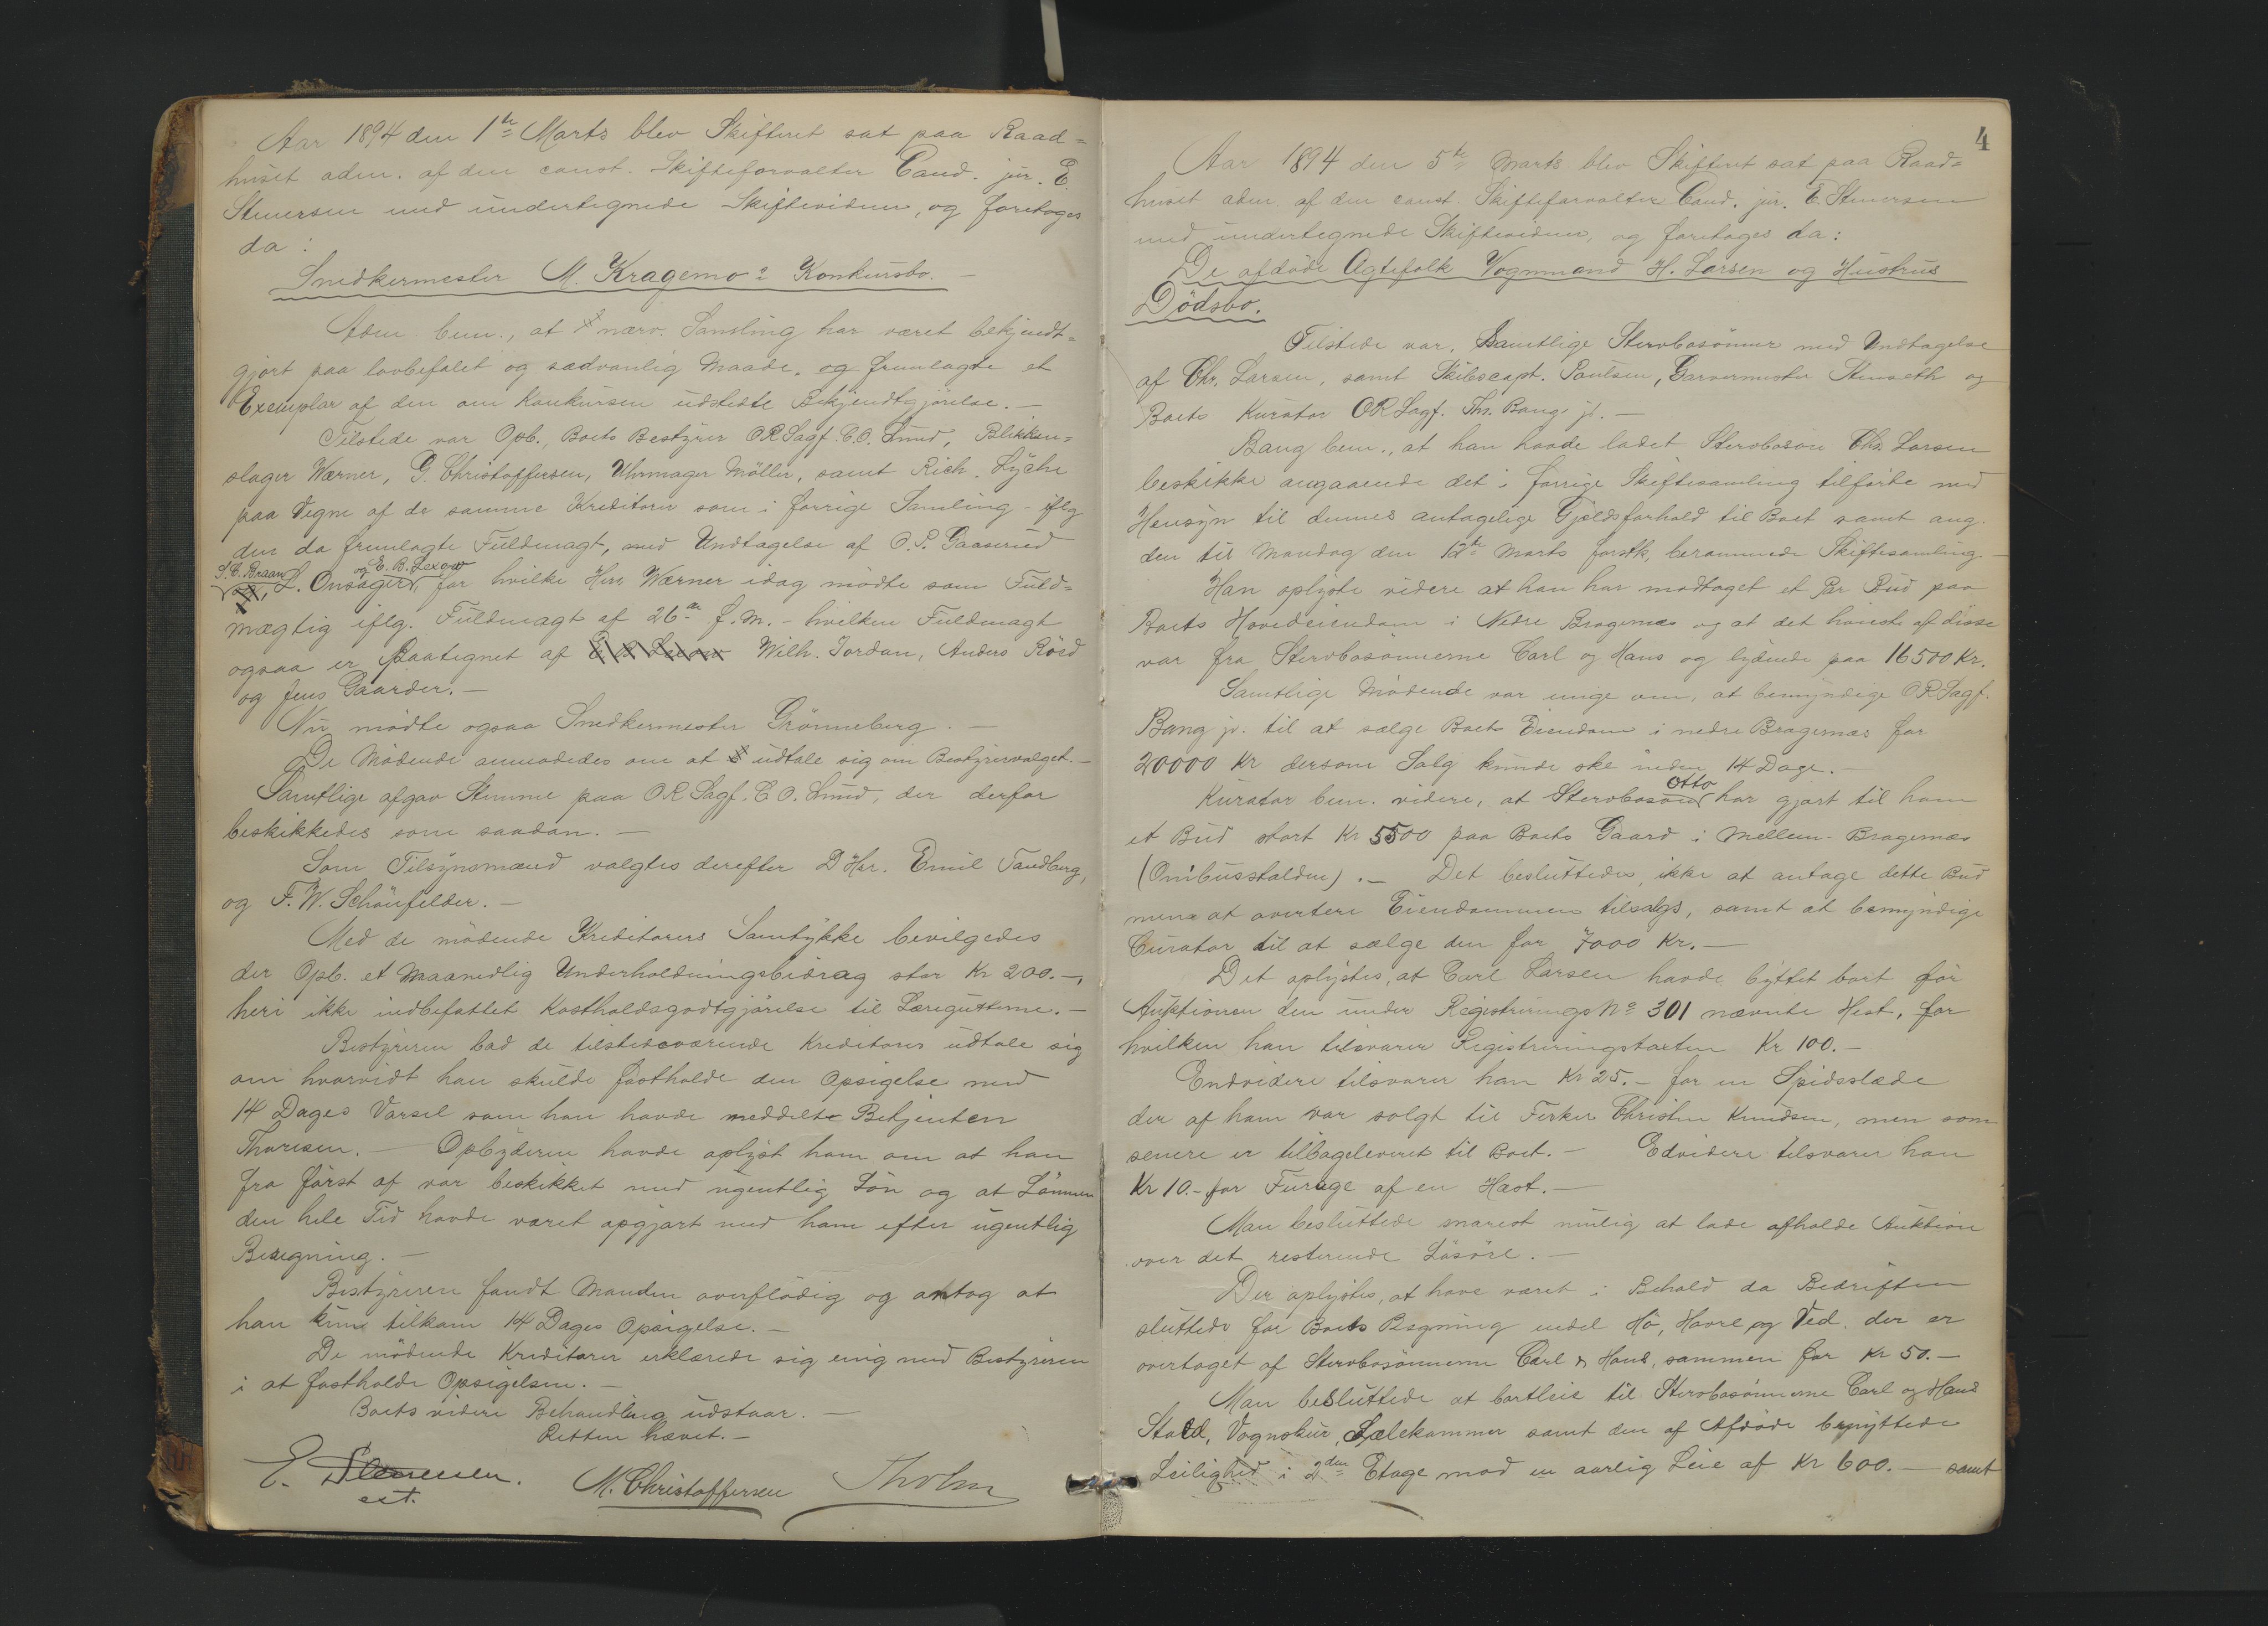 Aar 1894 den 1ste Marts blev Skifteret sat paa Raad=
huset adm. af den const. Skifteforvalter Cand. jur. E.
Stenersen med undertegnede Skiftevidner, og foretoges
da:
Snedkermester M. Kragemo's Konkursbo. —
Adm. bem., at nærv. Samling har været bekjendt=
gjort paa lovbefalet og sædvanlig Maade, og fremlagde et
Exemplar af den om Konkursen udstedte Bekjendtgjörelse. —
Tilstede var Opb., Boets Bestyrer ORSagf. C. O. Lund, Blikken=
slager Wærner, G. Christoffersen, Uhrmager Möller, samt Rich. Lyche
paa Vegne af de samme Kreditorer som i forrige Samling - iflg
den da fremlagte Fuldmagt, med Undtagelse af O. P. Gaaserud
S. C. Braan, L. Onsager og E. B. Lexow, for hvilke Herr Wærner idag mödte som Fuld=
mægtig iflg. Fuldmagt af 26de f. M. - hvilken Fuldmagt
ogsaa er paategnet af Wilh. Jordan, Anders Röed
og Jens Gaarder. —
Nu mödte ogsaa Snedkermester Grönneberg. —
De Mödende anmodedes om at udtale sig om Bestyrervalget. —
Samtlige afgav Stemme paa ORSagf. C. O. Lund, der derfor
beskikkedes som saadan. —
Som Tilsynsmænd valgtes derefter D'Hrr. Emil Sandberg,
og F. W. Schönfelder. —
Med de mödende Kreditorers Samtykke bevilgedes
der Opb. et Maanedlig Underholdningsbidrag stor Kr 200. —,
heri ikke indbefattet Kostholdsgodtgjörelse til Læregutterne. —
Bestyreren bad de tilstedeværende Kreditorer udtale sig
om hvorvidt han skulde fastholde den Opsigelse med
14 Dages Varsel som han havde meddelt Betjenten
Thoresen. — Opbyderen havde oplyst ham om at han
fra först af var beskikket med ugentlig Lön og at Lönnen
den hele Tid havde været opgjort med ham efter ugentlig
Beregning. —
Bestyreren fandt Manden overflödig og antog at
han kun tilkom 14 Dages Opsigelse. —
De mödende Kreditorer erklærede sig enig med Bestyreren
i at fastholde Opsigelsen. —
Boets videre Behandling udstaar. —
Retten hævet. —
E. Stenersen. M. Christoffersen Tholm
cst.
4
Aar 1894 den 5te Marts blev Skifteret sat paa Raad=
huset adm. af den const. Skifteforvalter Cand. jur. E. Stenersen
med undertegnede Skiftevidner, og foretoges da:
De afdöde Ægtefolk Vognmand H. Larsen og Hustrus
Dödsbo.
Tilstede var, Samtlige Stervbosönner med Undtagelse
af Chr. Larsen, samt Skibscapt. Poulsen, Garvermester Stenseth og
Boets Kurator ORSagf. Th. Bang jr. —
Bang bem., at han havde ladet Stervbosön Chr. Larsen
beskikke angaaende det i forrige Skiftesamling tilförte med
Hensyn til dennes antagelige Gjeldsforhold til Boet samt ang.
den til Mandag den 12te Marts förstk. berammede Skiftesamling. —
Han oplyste videre at han har modtaget et Par Bud paa
Boets Hovedeiendom i Nedre Bragernæs og at det höieste af disse
var fra Stervbosönnerne Carl og Hans og lydende paa 16500 Kr.
Samtlige Mödende var enige om, at bemyndige ORSagf.
Bang jr. til at sælge Boets Eiendom i nedre Bragernæs for
20000 Kr dersom Salg kunde ske inden 14 Dage. —
Kurator bem. videre, at Stervbosön Otto har gjort til ham
et Bud stort Kr 5500 paa Boets Gaard i Mellem-Bragernæs
(Omibusstalden). — Det besluttedes, ikke at antage dette Bud
men at avertere Eiendommen tilsalgs, samt at bemyndige
Curator til at sælge den for 7000 Kr. —
Det oplystes, at Carl Larsen havde byttet bort för
Auktionen den under Registrerings No 301 nævnte Hest, for
hvilken han tilsvarer Registreringstaxten Kr 100. —
Endvidere tilsvarer han Kr 25. — for en Spidsslæde
der af ham var solgt til Ferker Christen Knudsen, men som
senere er tilbageleveret til Boet. — Edvidere tilsvarer han
Kr 10. - for Furage af en Hæst. —
Man besluttede snarest mulig at lade afholde Auktion
over det resterende Lösöre. —
Der oplystes, at have været i Behold da Bedriften
sluttede for Boets Regning endel Hö, Havre og Ved, der er
overtaget af Stervbosönnerne Carl & Hans, sammen for Kr 50. —
Man besluttede at bortleie til Stervbosönnerne Carl og Hans
Stald, Vognskur, Sælekammer samt den af Afdöde benyttede
Leilighed i 2den Etage mod en aarlig Leie af Kr 600. — samt